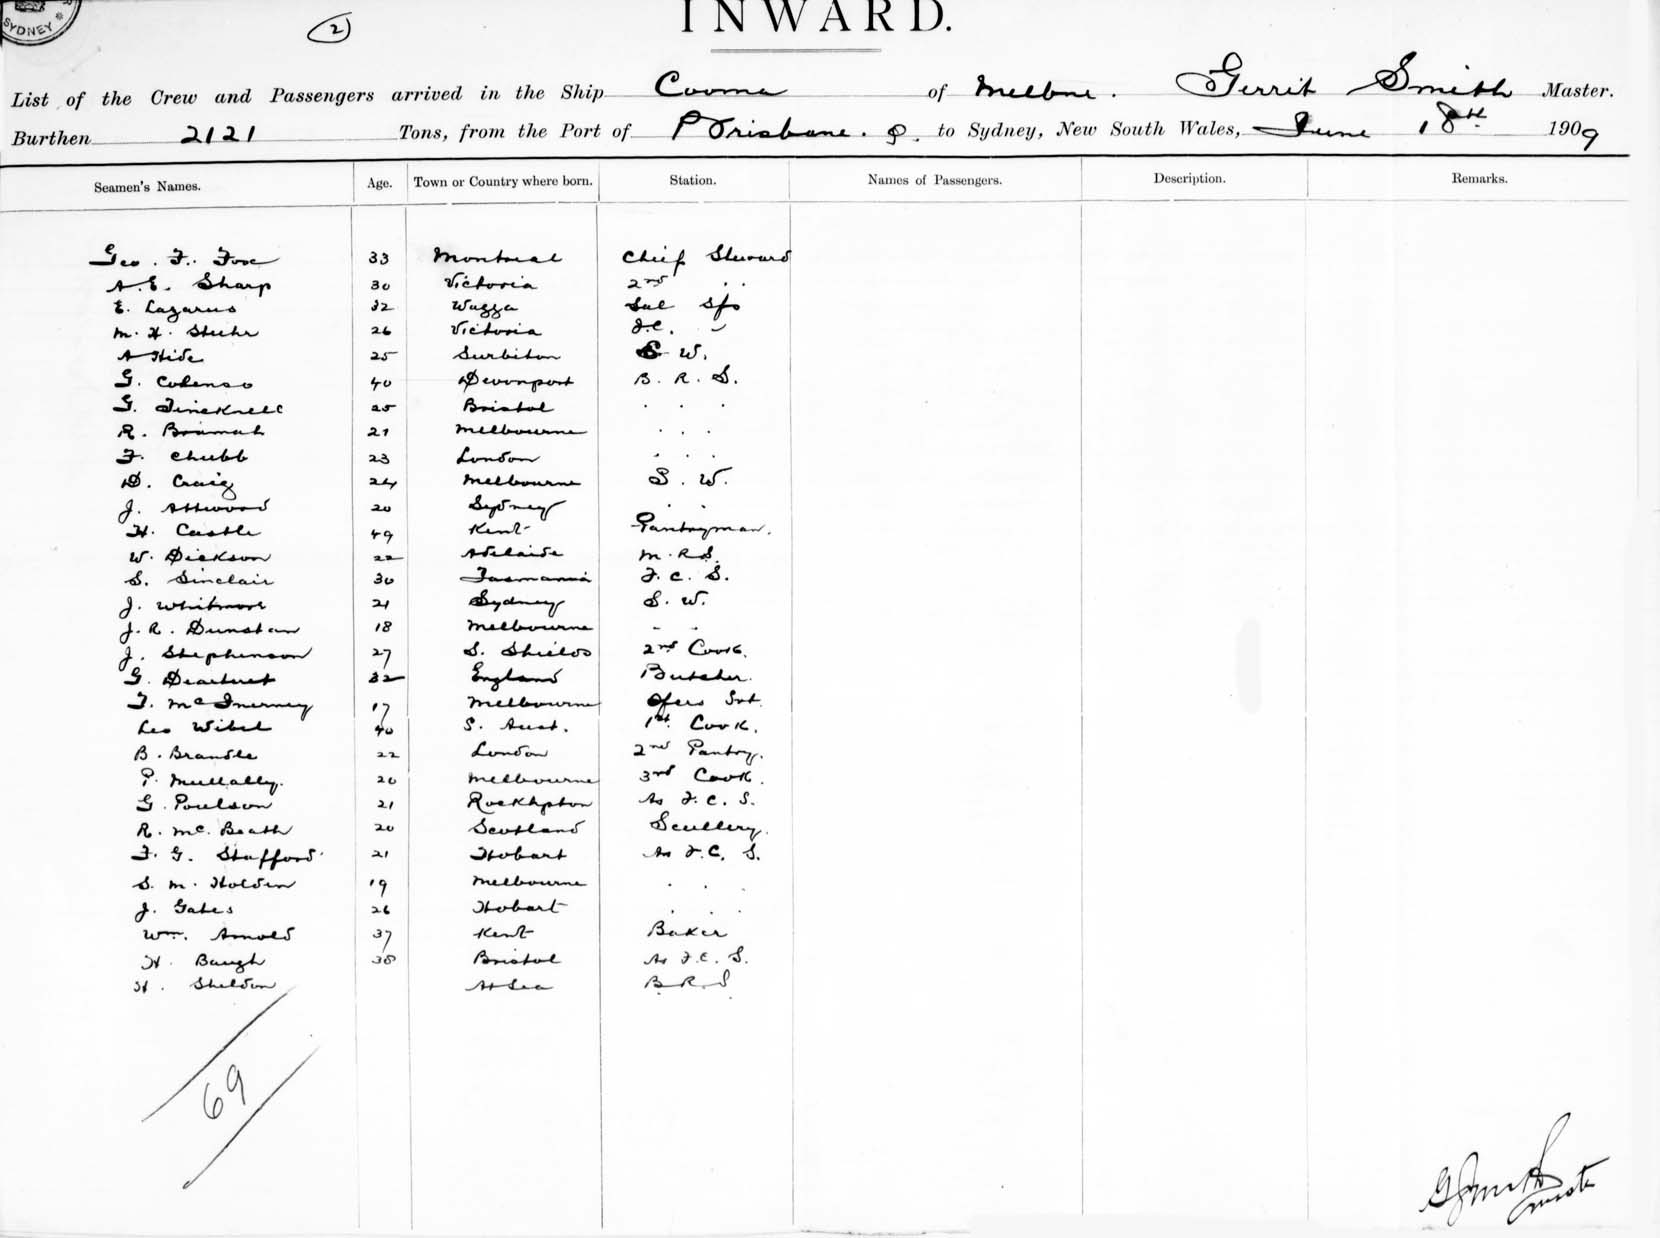 SYDNEY
2
INWARD.
List of the Crew and Passengers arrived in the Ship Cooma of Melbne. Gerrit Smith Master.
Burthen 2121 Tons, from the Port of Brisbane. Q. to Sydney, New South Wales, June 18th 1909
Seamen's Names. Age. Town or Country where born. Station. Names of Passengers. Description. Remarks.
Geo. F. Fox 33 Montreal Chief Steward
A. E. Sharp 30 Victoria 2nd . .
E. Lazarus 32 Wagga Sal
M. H. Stuhr 26 Victoria
A Hide 25 Surbiton S W.
G. Colenso 40 Devonport B. R. S.
G. Fincknell 25 Bristol . . .
R. Bramah 21 Melbourne . . .
F. Chubb 23 London . . .
D. Craig 24 Melbourne S. W.
J. Attwood 20 Sydney . .
H. Castle 49 Kent Pantryman.
W. Dickson 22 Adelaide M. R S.
S. Sinclair 30 Tasmania F. C. S.
J. Whitmore 21 Sydney S. W.
J. R. Dunstan 18 Melbourne - -
J. Stephenson 27 S. Shields 2nd Cook.
G. 32 England Butcher.
T. McInerney 17 Melbourne Ofcers Svt.
Leo Wibel 40 S. Aust. 1st. Cook.
B. Brandle 22 London 2nd Pantry.
P. Mullally. 20 Melbourne 3rd Cook.
G. Poulson 21 Rockhpton As F. C. S.
R. Mc. Beath 20 Scotland Scullery.
F. G. Stafford 21 Hobart As F. C. S.
S. M. Holden 19 Melbourne . . .
J. Gates 26 Hobart . . .
Wm. Arnold 37 Kent Baker
H. Baugh 38 Bristol As F. C. S.
H. Sheldon At Sea B. R. S.
69
G Smith
Master